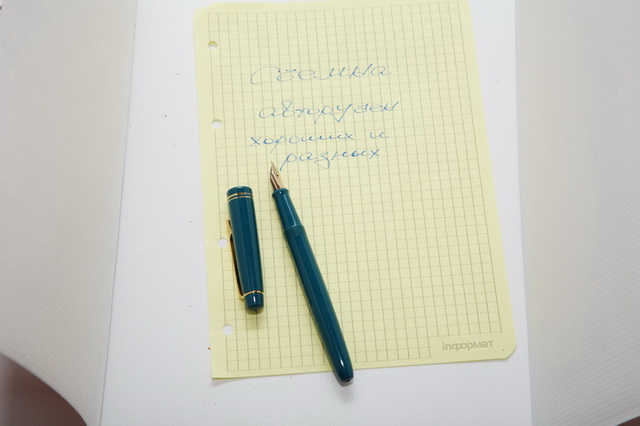 Съемка
авторучек
хороших и
разных
inформат